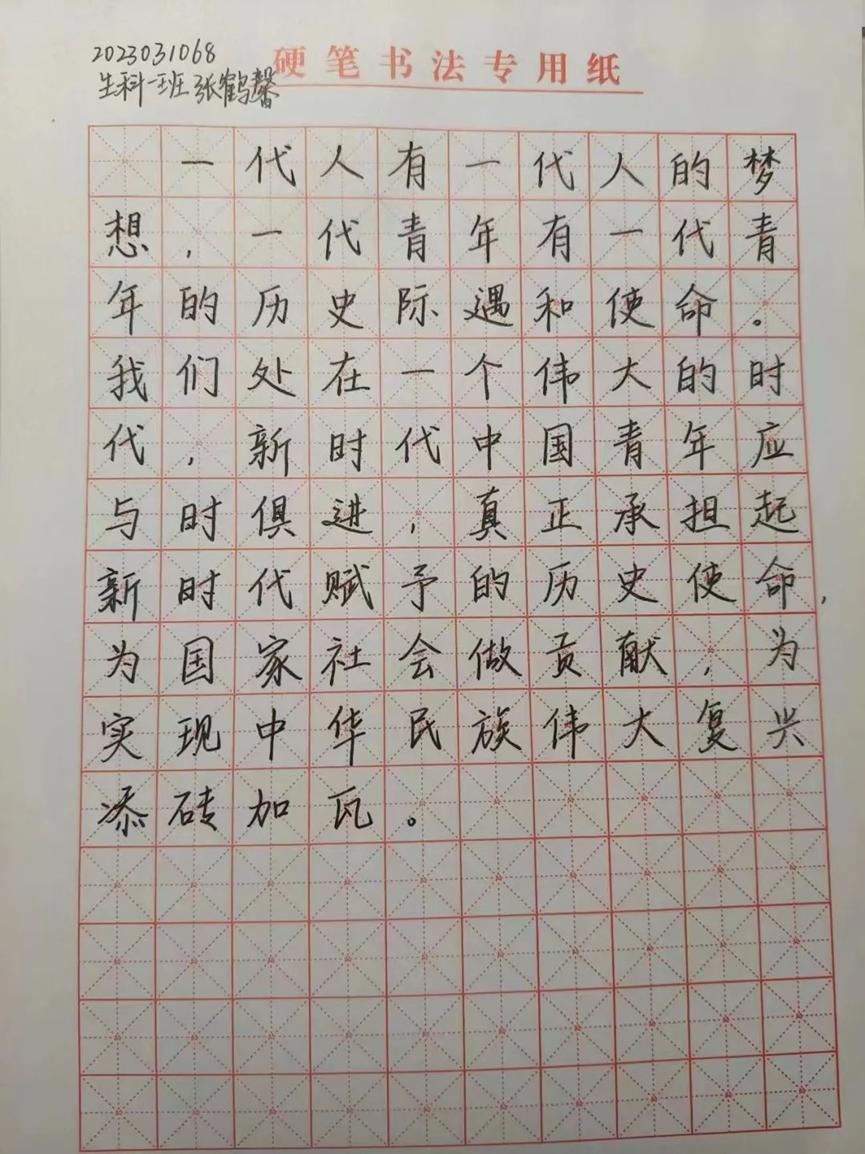 2023031068
硬笔书法专用纸
生科一班张鹤馨
一代人有一代人的梦
想，一代青年有一代青
年的历史际遇和使命。
我们处在一个伟大的时
代，新时代中国青年应
与时俱进，真正承担起
新时代赋予的历史使命，
为国家社会做贡献，为
实现中华民族伟大复兴
添砖加瓦。